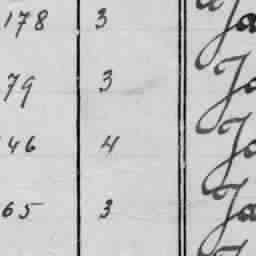 178 3 Ja
79 3 Ja
46 4 Ja
65 3 Ja